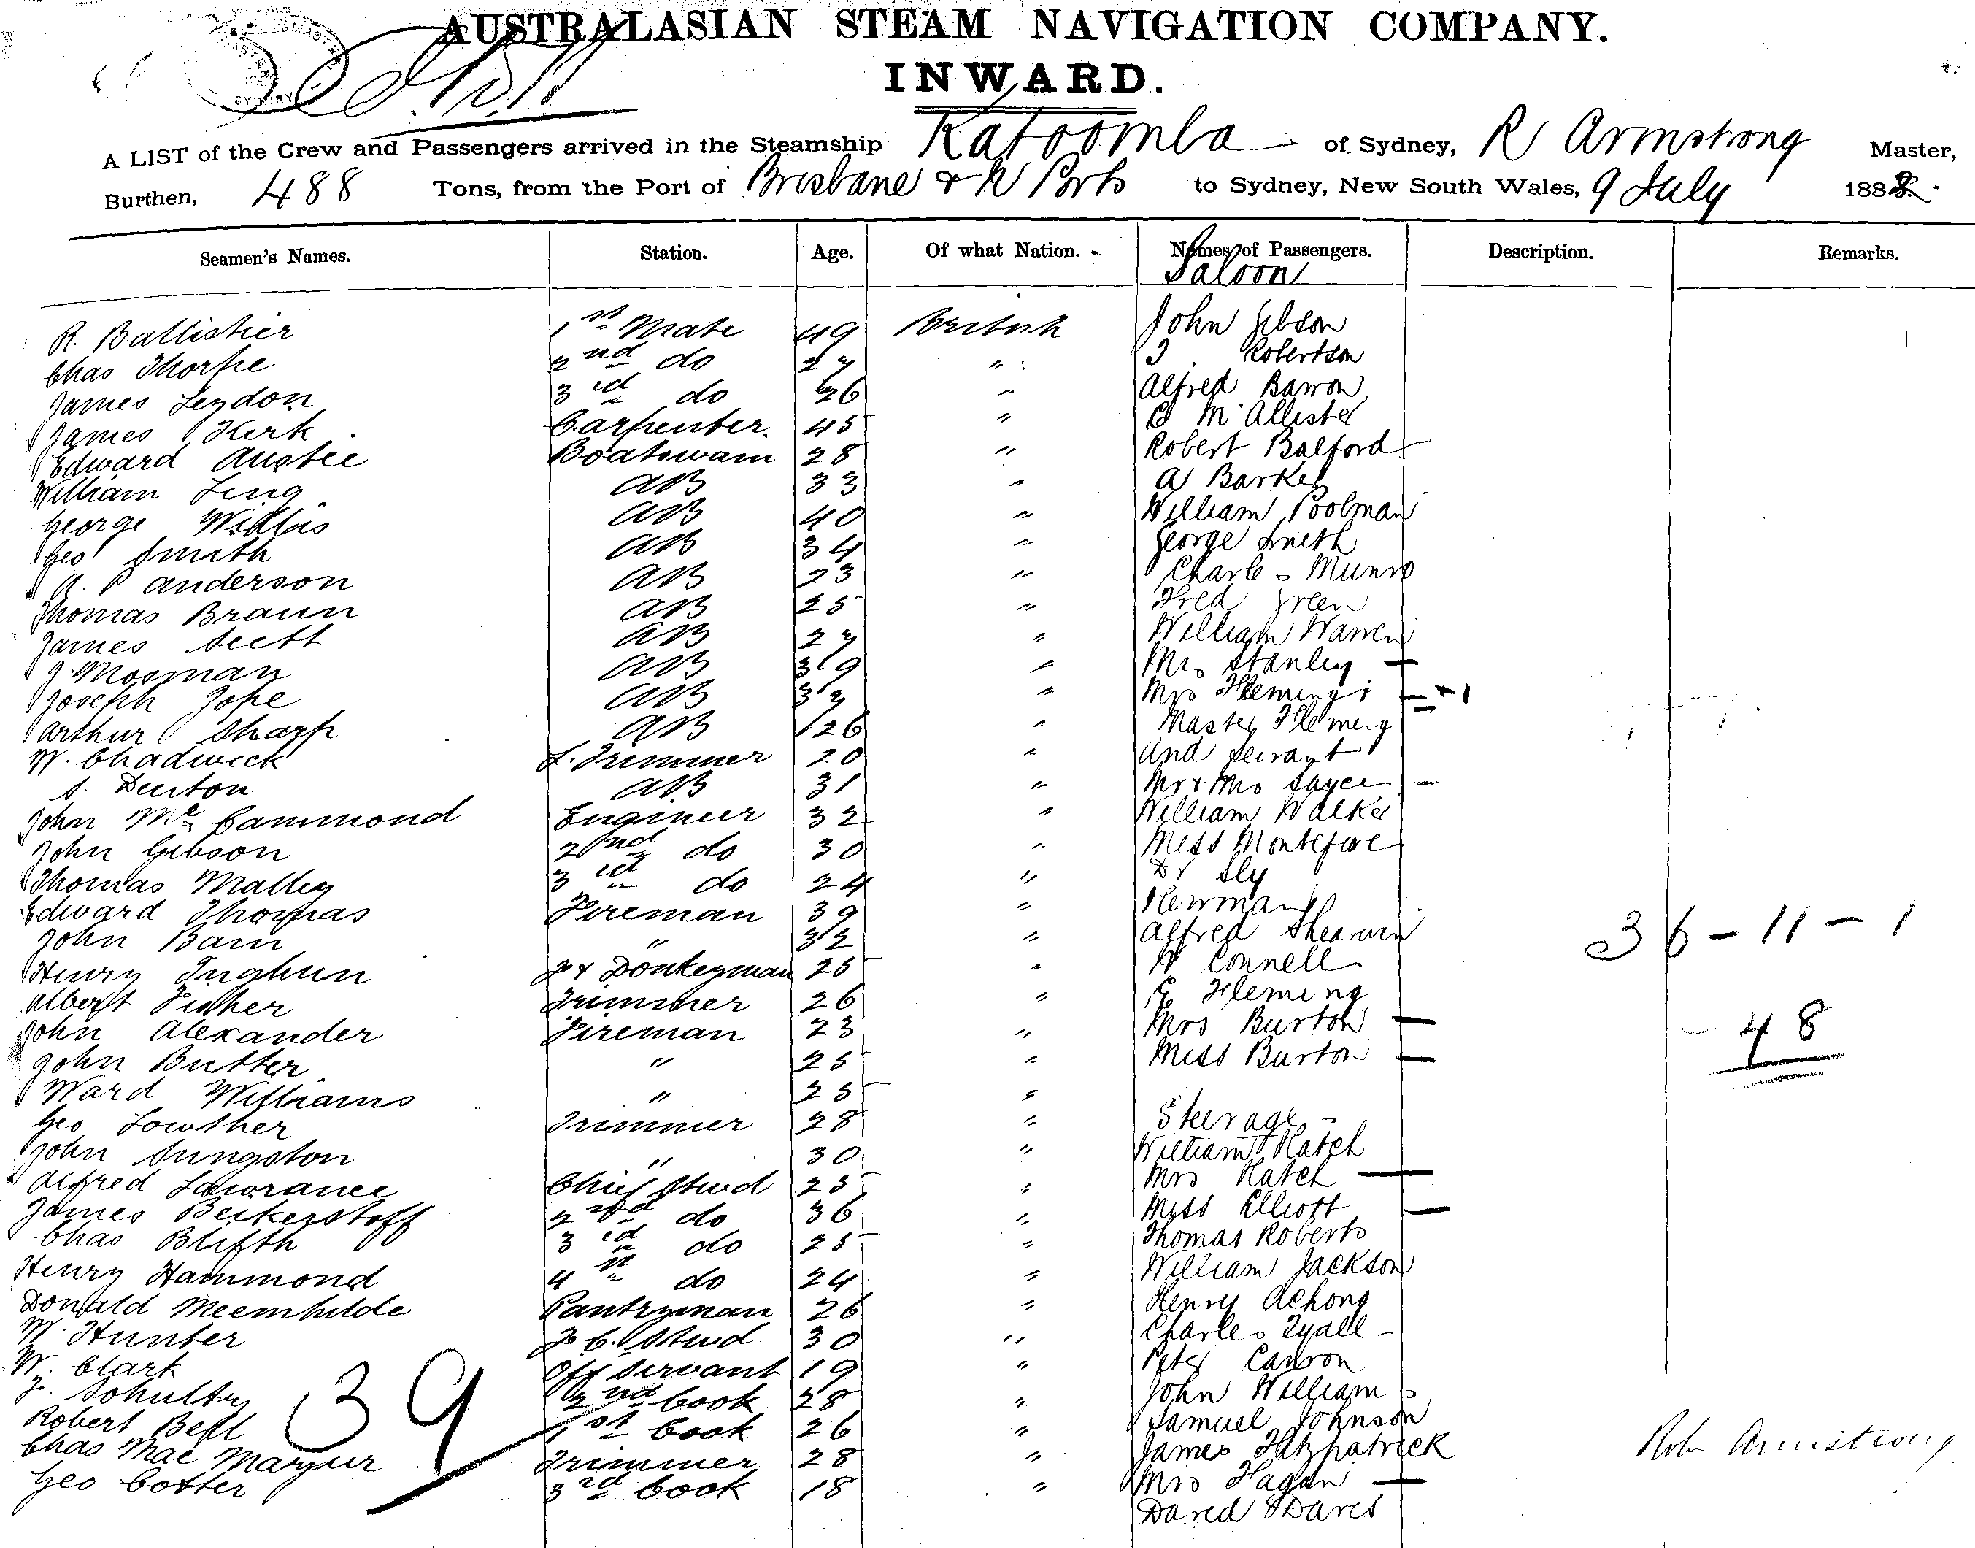 AUSTRALASIAN STEAM NAVIGATION COMPANY.
INWARD.
A LIST of the Crew and Passengers arrived in the Steamship Katoomba of Sydney, R Armstrong Master,
Burthen, 488 Tons, from the Port of Brisbane & N Ports to Sydney, New South Wales, 9 July 1882.
Seamen's Names. Station. Age. Of what Nation. Names of Passengers. Description. Remarks.
Saloon
R. Ballistier 1st Mate 49 British John Gibson
Chas Thorpe 2nd do 27 " J Robertson
James Leydon 3rd do 26 " Alfred Barron
James Kerk Carpenter. 45 " McAllister
Edward Austie Boatswain 28 " Robert Balford
William Ling AB 33 " A Barker
George Willis AB 40 " William Poolman
Geo Smith AB 34 " George Smith
A. P Anderson AB 23 " Charles Munro
Thomas Braun AB 25 " Fred Green
James Scott AB 27 " William Warren
J Mosman AB 39 " Mrs Stanley –
Joseph Jope AB 37 " Mrs Fleming – + 1
Arthur Sharp AB 26 " Master Fleming –
W. Chadwick L. Trimmer 20 " and servant
S. Durton AB 31 " Mr & Mrs Sayce –
John McCammond Engineer 32 " William Walker
John Gibson 2nd do 30 " Miss Montefiore
Thomas Malley 3rd do 24 " Dr Sly
Edward Thomas Fireman 39 " Newman
John Bain " 32 " Alfred Shearwin 36 – 11 – 1
Henry Inghun Donkeyman 25 " W Connell
Albert Fisher Trimmer 26 " G Fleming
John Alexander Fireman 23 " Mrs Burton – 48
John Butter " 25 " Miss Burton –
Ward Williams " 25 "
Geo Lowther Trimmer 28 " Steerage –
John Sungston " 30 " William Hatch
Alfred Lawrance Chief Stwd 25 " Mrs Hatch –
James Beikerstoff 2nd do 36 " Miss Elliott –
Chas Blifth 3rd do 25 " Thomas Roberts
Henry Hammond 4th do 24 " William Jackson
Donald Meemhilde Pantryman 26 " Henry Achong
W. Hunter F C. Stwd 30 " Charles Lyall –
W. Clark Off Servant 19 " Peter Carron
J. Schultz 2nd Cook 28 " John Williams
Robert Bell 1st Cook 26 " Samuel Johnson
Chas Mac Marjur Trimmer 28 " James Fitzpatrick
Geo Cotter 3rd Cook 18 " Mrs Fagan –
David Davis
39
Robt Armstrong